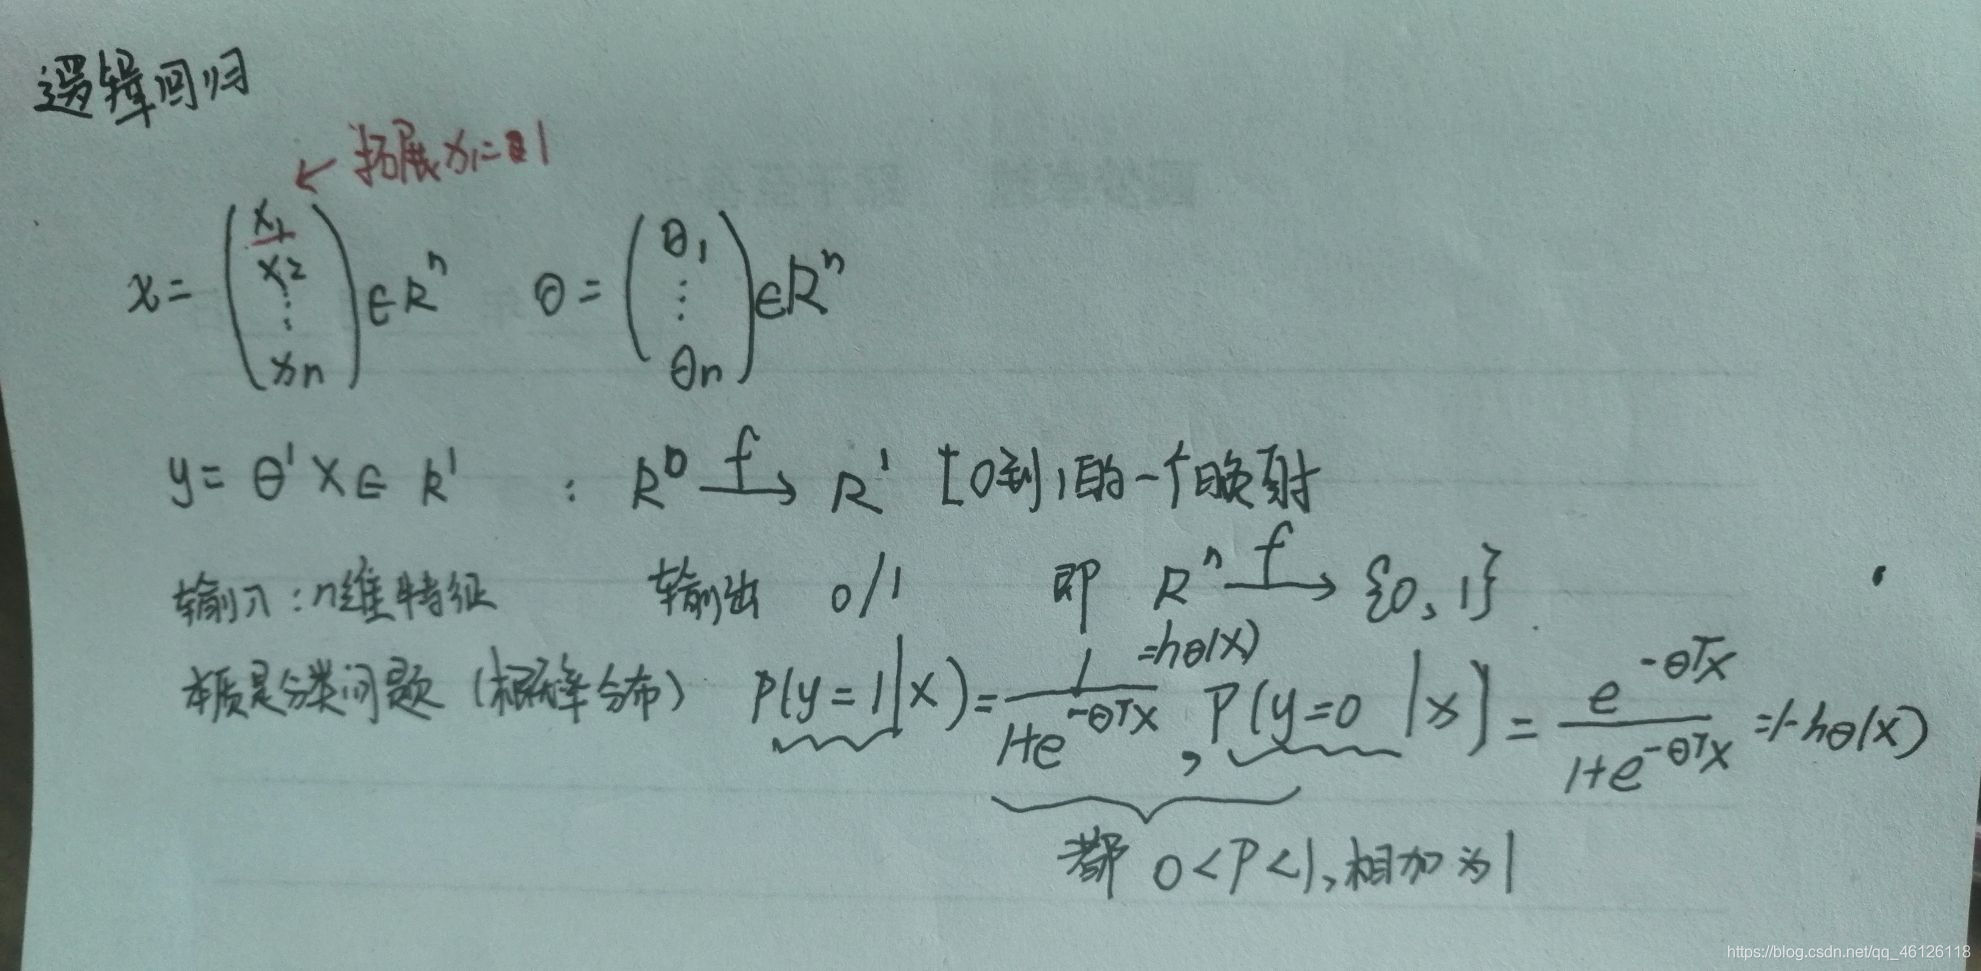 逻辑回归
← 拓展 x₁=1
x = (x₁ x₂ ⋮ xn) ∈ Rⁿ θ = (θ₁ ⋮ θn) ∈ Rⁿ
y = θ' x ∈ R¹ : R⁰ —f→ R¹ [0到1的一个映射
输入:n维特征 输出 0/1 即 Rⁿ —f→ {0, 1}
本质是分类问题 (概率分布) P(y=1|x) = 1/(1+e^(-θᵀx)) = hθ(x) , P(y=0|x) = e^(-θᵀx)/(1+e^(-θᵀx)) = 1-hθ(x)
都 0<P<1,相加为1
https://blog.csdn.net/qq_46126118